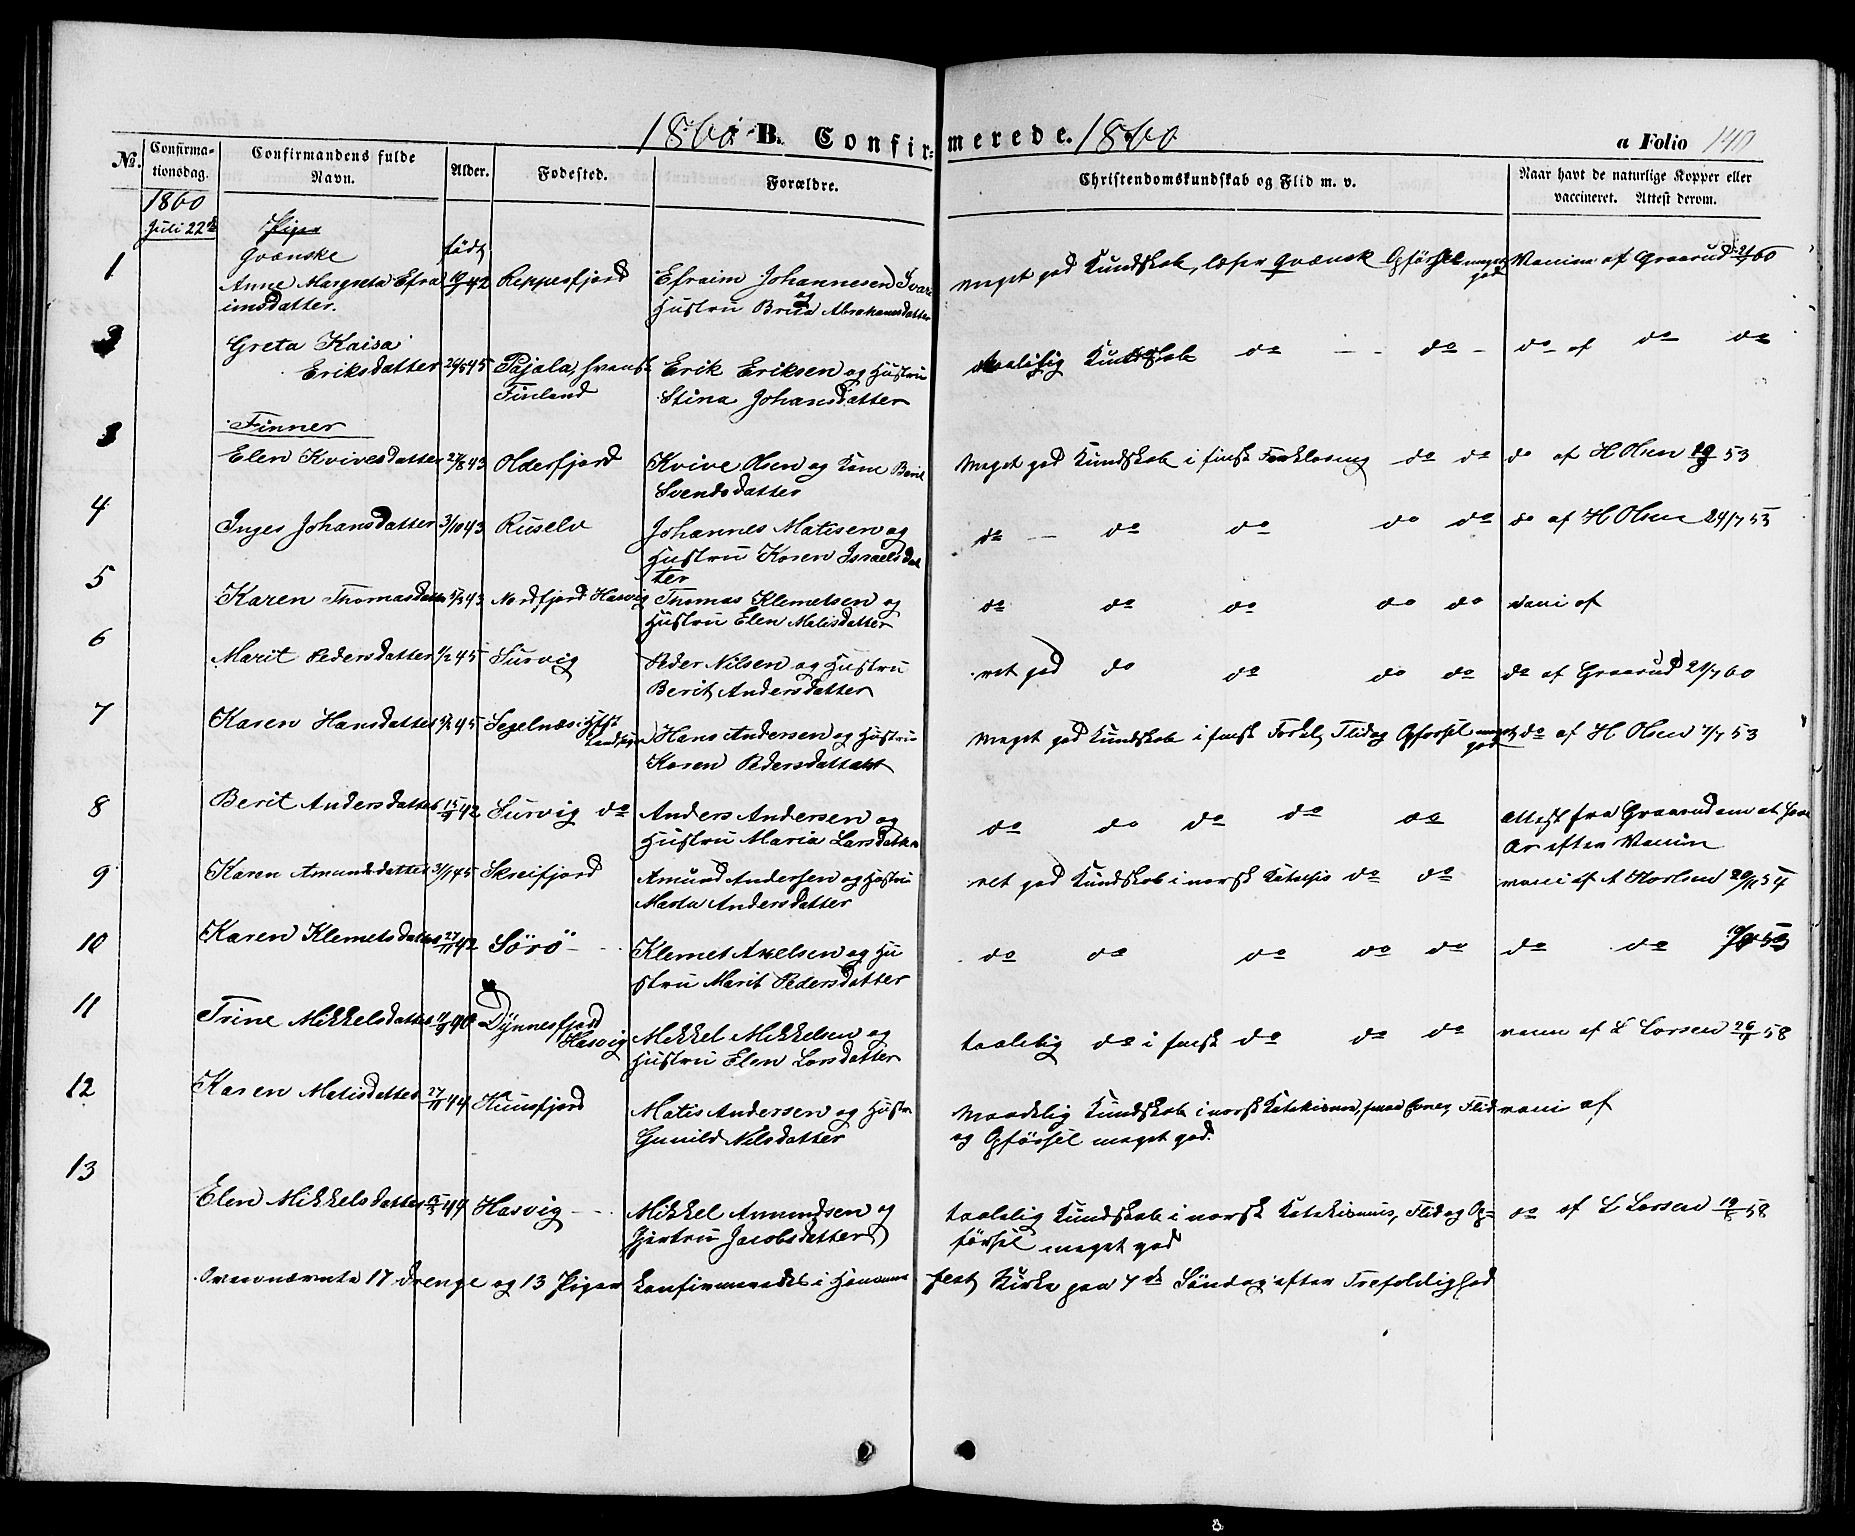 1860 B. Confirmerede. 1860
a Folio 140
No. Confirmationsdag. Confirmandens fulde Navn. Alder. Fødested. Forældre. Christendomskundskab og Flid m. v. Naar havt de naturlige Kopper eller vaccineret. Attest derom.
1860
Juli 22de Piger
Qvænske født
1 Anne Margreta Efra Reppesfjord Efraim Johannesen Ivar meget god Kundskab, læser Qvænsk Opførsel meget god Vaccine af Graarud 21/7 60
imsdatter. Hustru Brita Abrahamsdatter
Greta Kaisa
Eriksdatter 24/8 45 Pajala, svensk Erik Eriksen og Hustru taalelig Kundskab do - - do - do af do do
Finland Stina Johansdatter
Finner
3 Elen Kvivesdatter 27/8 43 Olderfjord Kvive Olsen og Kone Berit Meget god Kundskab i finsk Forklaring do do do af H Olsen 53
Svendsdatter
4 Inger Johansdatter 3/10 43 Ruselv Johannes Matisen og do - do do do do do af H Olsen 24/7 53
Hustru Karen Israelsdat
ter
5 Karen Thomasdatter 43 Nordfjord Hasvig Thomas Klemetsen og do do do do do vacci af
Hustru Elen Matisdatter
6 Marit Pedersdatter 1/2 45 Survig Peder Nilsen og Hustru ret god do do do do do af Graarud 21/7 60
Berit Andersdatter
7 Karen Hansdatter 45 Segelnæs Hans Andersen og Hustru Meget god Kundskab i finsk Forkl, Flid og Opførsel meget god do af H Olsen 7/7 53
Karen Pedersdatter
8 Berit Andersdatter 42 Survig do Anders Andersen og do do do do do Attest fra Graarud om at have
Hustru Maria Larsdatter Ar efter Vaccine
9 Karen Amundsdatter 3/1 45 Skreifjord Amund Andersen og Hustru ret god Kundskab i norsk Katekis do do vacci af A Karlsen 20/11 54
Marta Andersdatter
10 Karen Klemetsdatter 27/11 42 Sörö - - Klemet Axelsen og Hu do do do do do do do
stru Marit Pedersdatter
11 Trine Mikkelsdatter 40 Dynnesfjord
Hasvig Mikkel Mikkelsen og taalelig do i finsk do do do vaccin af L Larsen 58
Hustru Elen Larsdatter
12 Karen Matisdatter 27/11 44 Matis Andersen og Hustru Maadelig Kundskab i norsk Katekismus, smaa Evner, Flid vacci af
Gunild Nilsdatter og Opförsel meget god.
13 Elen Mikkelsdatter 44 Hasvig - - Mikkel Amundsen og taalelig Kundskab i norsk Katekismus, Flid og Op= do af L Larsen 58
Gjertru Jacobsdatter försel meget god
Ovennævnte 17 Drenge og 13 Piger konfirmeredes i Hammerfest Kirke paa 7de Söndag efter Trefoldighed